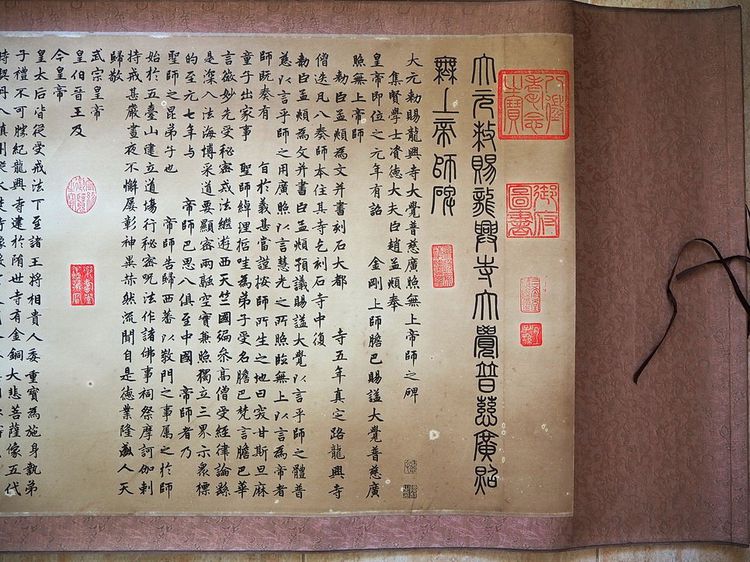 八徵耄念之寶
御府圖書
大元敕賜龍興寺大覺普慈廣照
無上帝師碑
大元敕賜龍興寺大覺普慈廣照無上帝師之碑
集賢學士資德大夫臣趙孟頫奉
皇帝即位之元年有詔 金剛上師膽巴賜謚大覺普慈廣
照無上帝師
敕臣孟頫為文并書刻石大都 寺五年真定路龍興寺
僧迭凡八奏師本住其寺乞刻石寺中復
敕臣孟頫為文并書臣孟頫預議賜謚大覺以言乎師之體普
慈以言乎師之用廣照以言慧光之所照臨無上以言為帝者
師既奏有 旨於義甚當謹按師所生之地曰突甘斯旦麻
童子出家事 聖師綽理哲哇為弟子受名膽巴梵言膽巴華
言微妙先受秘密戒法繼遊西天竺國遍參高僧受經律論繇
是深入法海博采道要顯密兩融空實兼照獨立三界示眾標
的至元七年與 帝師巴思八俱至中國 帝師者乃
聖師之昆弟子也 帝師告歸西蕃以教門之事屬之於師
始於五臺山建立道場行秘密呪法作諸佛事祠祭摩訶伽剌
持戒甚嚴晝夜不懈屢彰神異赫然流聞自是德業隆盛人天
歸敬
武宗皇帝
皇伯晉王及
今皇帝
皇太后皆從受戒法下至諸王將相貴人委重寶為施身執弟
子禮不可勝紀龍興寺建於隋世寺有金銅大悲菩薩像五代
時契丹入鎮州縱火焚寺像